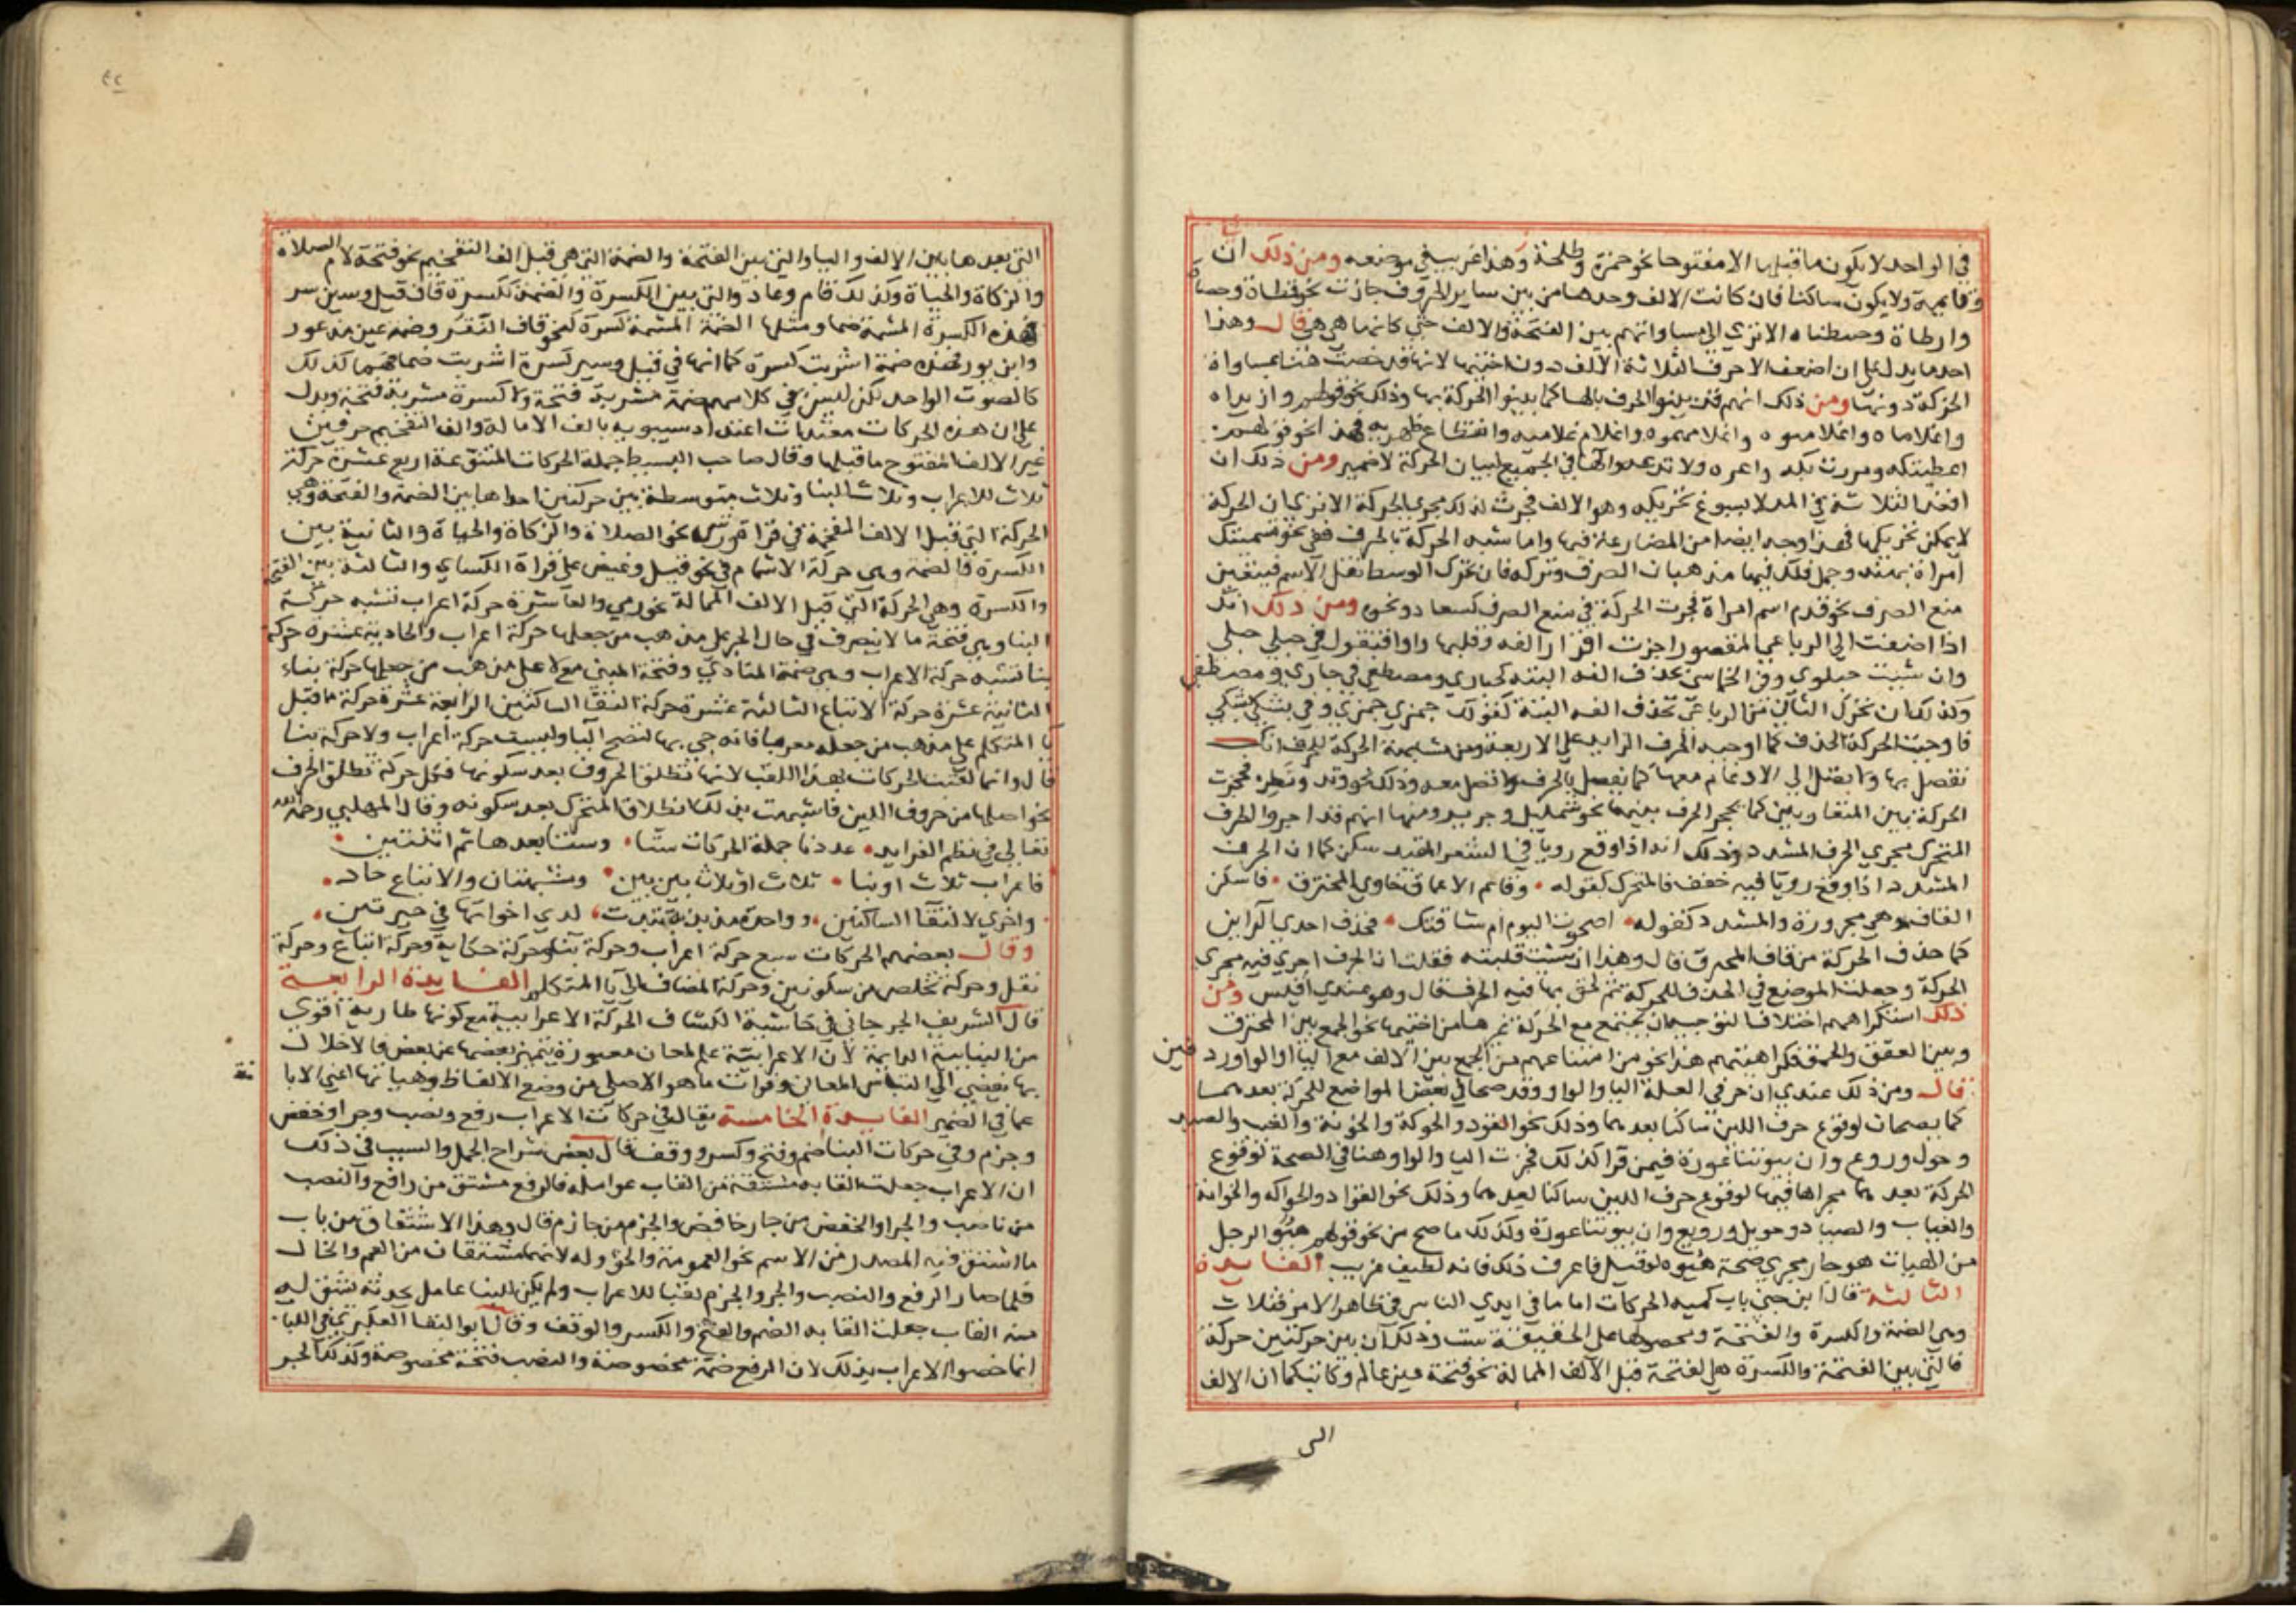 في الواحد لا يكون ما قبلها الا مفتوحا نحو حمزة وطلحة وهذا غريب في موضعه ومن ذلك ان
وقايمة ولا يكون ساكنا فان كانت الالف وحدها من بين ساير الحروف جازت نحو قطاة وحصاة
وارطاة وحبطناه الا تري الي مساواتهم بين الفتحة والالف حتي كانها هي هي قال وهذا
احد ما يدل علي ان اضعف الاحرف الثلاثة الالف دون اختيها لانها قد خصت هنا بمساواة
الحركة دونهما ومن ذلك انهم قد بينوا الحرف بالها كما بينوا الحركة بها وذلك نحو قولهم وازيداه
واغلاماه واغلامهوه واغلامهموه واغلام غلاميه وانقطاع ظهريه فهذا نحو قولهم
اعطيتكه ومررت بكه واغزه ولا تدعه والها في الجميع لبيان الحركة لا ضمير ومن ذلك ان
اقعد الثلاثة في المد لا يسوغ تحريكه وهو الالف فجرت لذلك مجري الحركة الا تري ان الحركة
لا يمكن تحريكها فهذا وجه ايضا من المضارعة فيها واما شبه الحركة بالحرف ففي نحو تسميتك
امراة بهند وجمل فلك فيها مذهبان الصرف وتركه فان تحرك الاوسط ثقل الاسم فيتعين
منع الصرف نحو قدم اسم امراة فجرت الحركة في منع الصرف كسعاد ونحوه ومن ذلك انك
اذا اضفت الي الرباعي المقصور اجزت اقرار الفه وقلبها واوا فتقول في حبلي حبلي
وان شيت حبلوي وفي الخماسي بحذف الفه البتة كحباري ومصطفي في حباري ومصطفي
وكذلك ان تحرك الثاني من الرباعي تحذف الفه البتة كقولك جمزي جمزي وفي بشكي بشكي
فاوجبت الحركة الحذف كما اوجبه الحرف الزايد علي الاربعة ومن شابهة الحركة للحرف انك
تفصل بها ولا تصل الي الادغام معها كما تفصل بالحرف ولا تصل معه وذلك نحو وتد ووطد فحجزت
الحركة بين المتقاربين كما يحجز الحرف بينهما نحو شمليل وجرير ومنها انهم قد اجروا الحرف
المتحرك مجري الحرف المشدد وذلك انه اذا وقع رويا في الشعر المقيد سكن كما ان الحرف
المشدد اذا وقع رويا فيه خفف فالمتحرك كقوله وقاتم الاعماق خاوي المخترق فاسكن
القاف وهي مجرورة والمشدد كقوله اصحوت اليوم ام شاقتك فحذف احدي الراين
كما حذف الحركة من قاف المخترق قال وهذا ان شيت قلبته فقلت ان الحرف اجري فيه مجري
الحركة وجعلت الموضع في الحذف للحركة ثم لحق بها فيه الحرف قال وهو عندي اقيس ومن
ذلك استكراههم اختلاف التوجيه ان يجتمع مع الحركة غيرها من اختيها نحو الجمع بين المخترق
وبين العقق والحمق فكراهيتهم هذا نحو من امتناعهم من الجمع بين الالف مع اليا والواو ردفين
قال ومن ذلك عندي ان حرفي العلة اليا والواو قد صحا في بعض المواضع للحركة بعدهما
كما يصحان لوقوع حرف اللين ساكنا بعدهما وذلك نحو القود والحوكة والخونة والغيب والصيد
وحول وروع وان بيوتنا عورة فيمن قرا كذلك فجرت اليا والواو هنا في الصحة لوقوع
الحركة بعدهما مجراها فيهما لوقوع حرف اللين ساكنا بعدهما وذلك نحو القواد والحواكه والخوانة
والغياب والصياد وحويل ورويع وان بيوتنا عورة وكذلك ما صح من نحو قولهم هيؤ الرجل
من الهيات هو جار مجري صحة هيوء لو قيل فاعرف ذلك فانه لطيف غريب الفايدة
الثالثة قال ابن جني باب كمية الحركات اما ما في ايدي الناس في ظاهر الامر فثلاث
وهي الضمة والكسرة والفتحة ومحصولها علي الحقيقة ست وذلك ان بين حركتين حركة
فالتي بين الفتحة والكسرة هي الفتحة قبل الالف الممالة نحو فتحة عين عالم وكاتب كما ان الالف
الى
٤٢
التي بعدها بين الالف واليا والتي بين الفتحة والضمة التي هي قبل الف التفخيم نحو فتحة لام الصلاة
والزكاة والحياة وكذلك قام وعاد والتي بين الكسرة والضمة ككسرة قاف قيل وسين سر
فهذه الكسرة المشمة ضما ومثلها الضمة المشمة كسرة كنحو قاف النقر وضمة عين مذعور
وابن بور فهذه ضمة اشربت كسرة كما انها في قيل وسير كسرة اشربت ضما فهما كذلك
كالصوت الواحد لكن ليس في كلامهم ضمة مشربة فتحة ولا كسرة مشربة فتحة ويدل
علي ان هذه الحركات معتدات اعتداد سيبويه بالف الامالة والف التفخيم حرفين
غير الالف المفتوح ما قبلها وقال صاحب البسيط جملة الحركات المتنوعة اربع عشرة حركة
ثلاث للاعراب وثلاث للبنا وثلاث متوسطة بين حركتين احداها بين الضمة والفتحة وهي
الحركة التي قبل الالف المفخمة في قراة ورش نحو الصلاة والزكاة والحياة والثانية بين
الكسرة والضمة وهي حركة الاشمام في نحو قيل وغيض علي قراة الكساي والثالثة بين الفتحة
والكسرة وهي الحركة التي قبل الالف الممالة نحو رمي والعاشرة حركة اعراب تشبه حركة
البنا وهي فتحة ما لا ينصرف في حال الجر علي مذهب من جعلها حركة اعراب والحادية عشرة حركة
بنا تشبه حركة الاعراب وهي ضمة المنادي وفتحة المبني مع لا علي مذهب من جعلها حركة بناء
الثانية عشرة حركة الاتباع الثالثة عشرة حركة التقا الساكنين الرابعة عشرة حركة ما قبل
يا المتكلم علي مذهب من جعله معربا فانه جي بها لتصح اليا وليست حركة اعراب ولا حركة بنا
قال وانما لقبت الحركات بهذا اللقب لانها تطلق الحروف بعد سكونها فكل حركة تطلق الحرف
نحو اصلها من حروف اللين فاشبهت بذلك انطلاق المتحرك بعد سكونه وقال المهلبي رحمه الله
تعالي في نظم الفرايد عددنا جملة الحركات ستا وستا بعدها ثم اثنتين
فاعراب ثلاث او بنا ثلاث او ثلاث بين بين ومشبهتان والاتباع حاد
واخري لالتقا الساكنين وواحدة مذبذبة تبدت لدي اخواتها في حيرتين
وقال بعضهم الحركات سبع حركة اعراب وحركة بنا وحركة حكاية وحركة اتباع وحركة
نقل وحركة تخلص من سكونين وحركة المضاف الي يا المتكلم الفايدة الرابعة
قال الشريف الجرجاني في حاشية الكشاف الحركة الاعرابية مع كونها طارية اقوي
من البنايية الدايمة لان الاعرابية علم لمعان معتورة يتميز بعضها عن بعض فالاخلال
بها يفضي الي التباس المعاني وفوات ما هو الاصلي من وضع الالفاظ وهياتها اعني الابا
نة
عما في الضمير الفايدة الخامسة يقال في حركات الاعراب رفع ونصب وجر او خفض
وجزم وفي حركات البنا ضم وفتح وكسر ووقف قال بعض شراح الجمل والسبب في ذلك
ان الاعراب جعلت القابه مشتقة من القاب عوامله فالرفع مشتق من رافع والنصب
من ناصب والجر او الخفض من جار خافض والجزم من جازم قال وهذا الاشتقاق من باب
ما اشتق فيه المصدر من الاسم نحو العمومة والخوولة لانهما مشتقان من العم والخال
فلما صار الرفع والنصب والجر والجزم لقبا للاعراب ولم يكن للبنا عامل يحدثه يشتق له
منه القاب جعلت القابه الضم والفتح والكسر والوقف وقال ابو البقا العكبري في اللباب
انما خصوا الاعراب بذلك لان الرفع ضمة مخصوصة والنصب فتحة مخصوصة وكذلك الجر